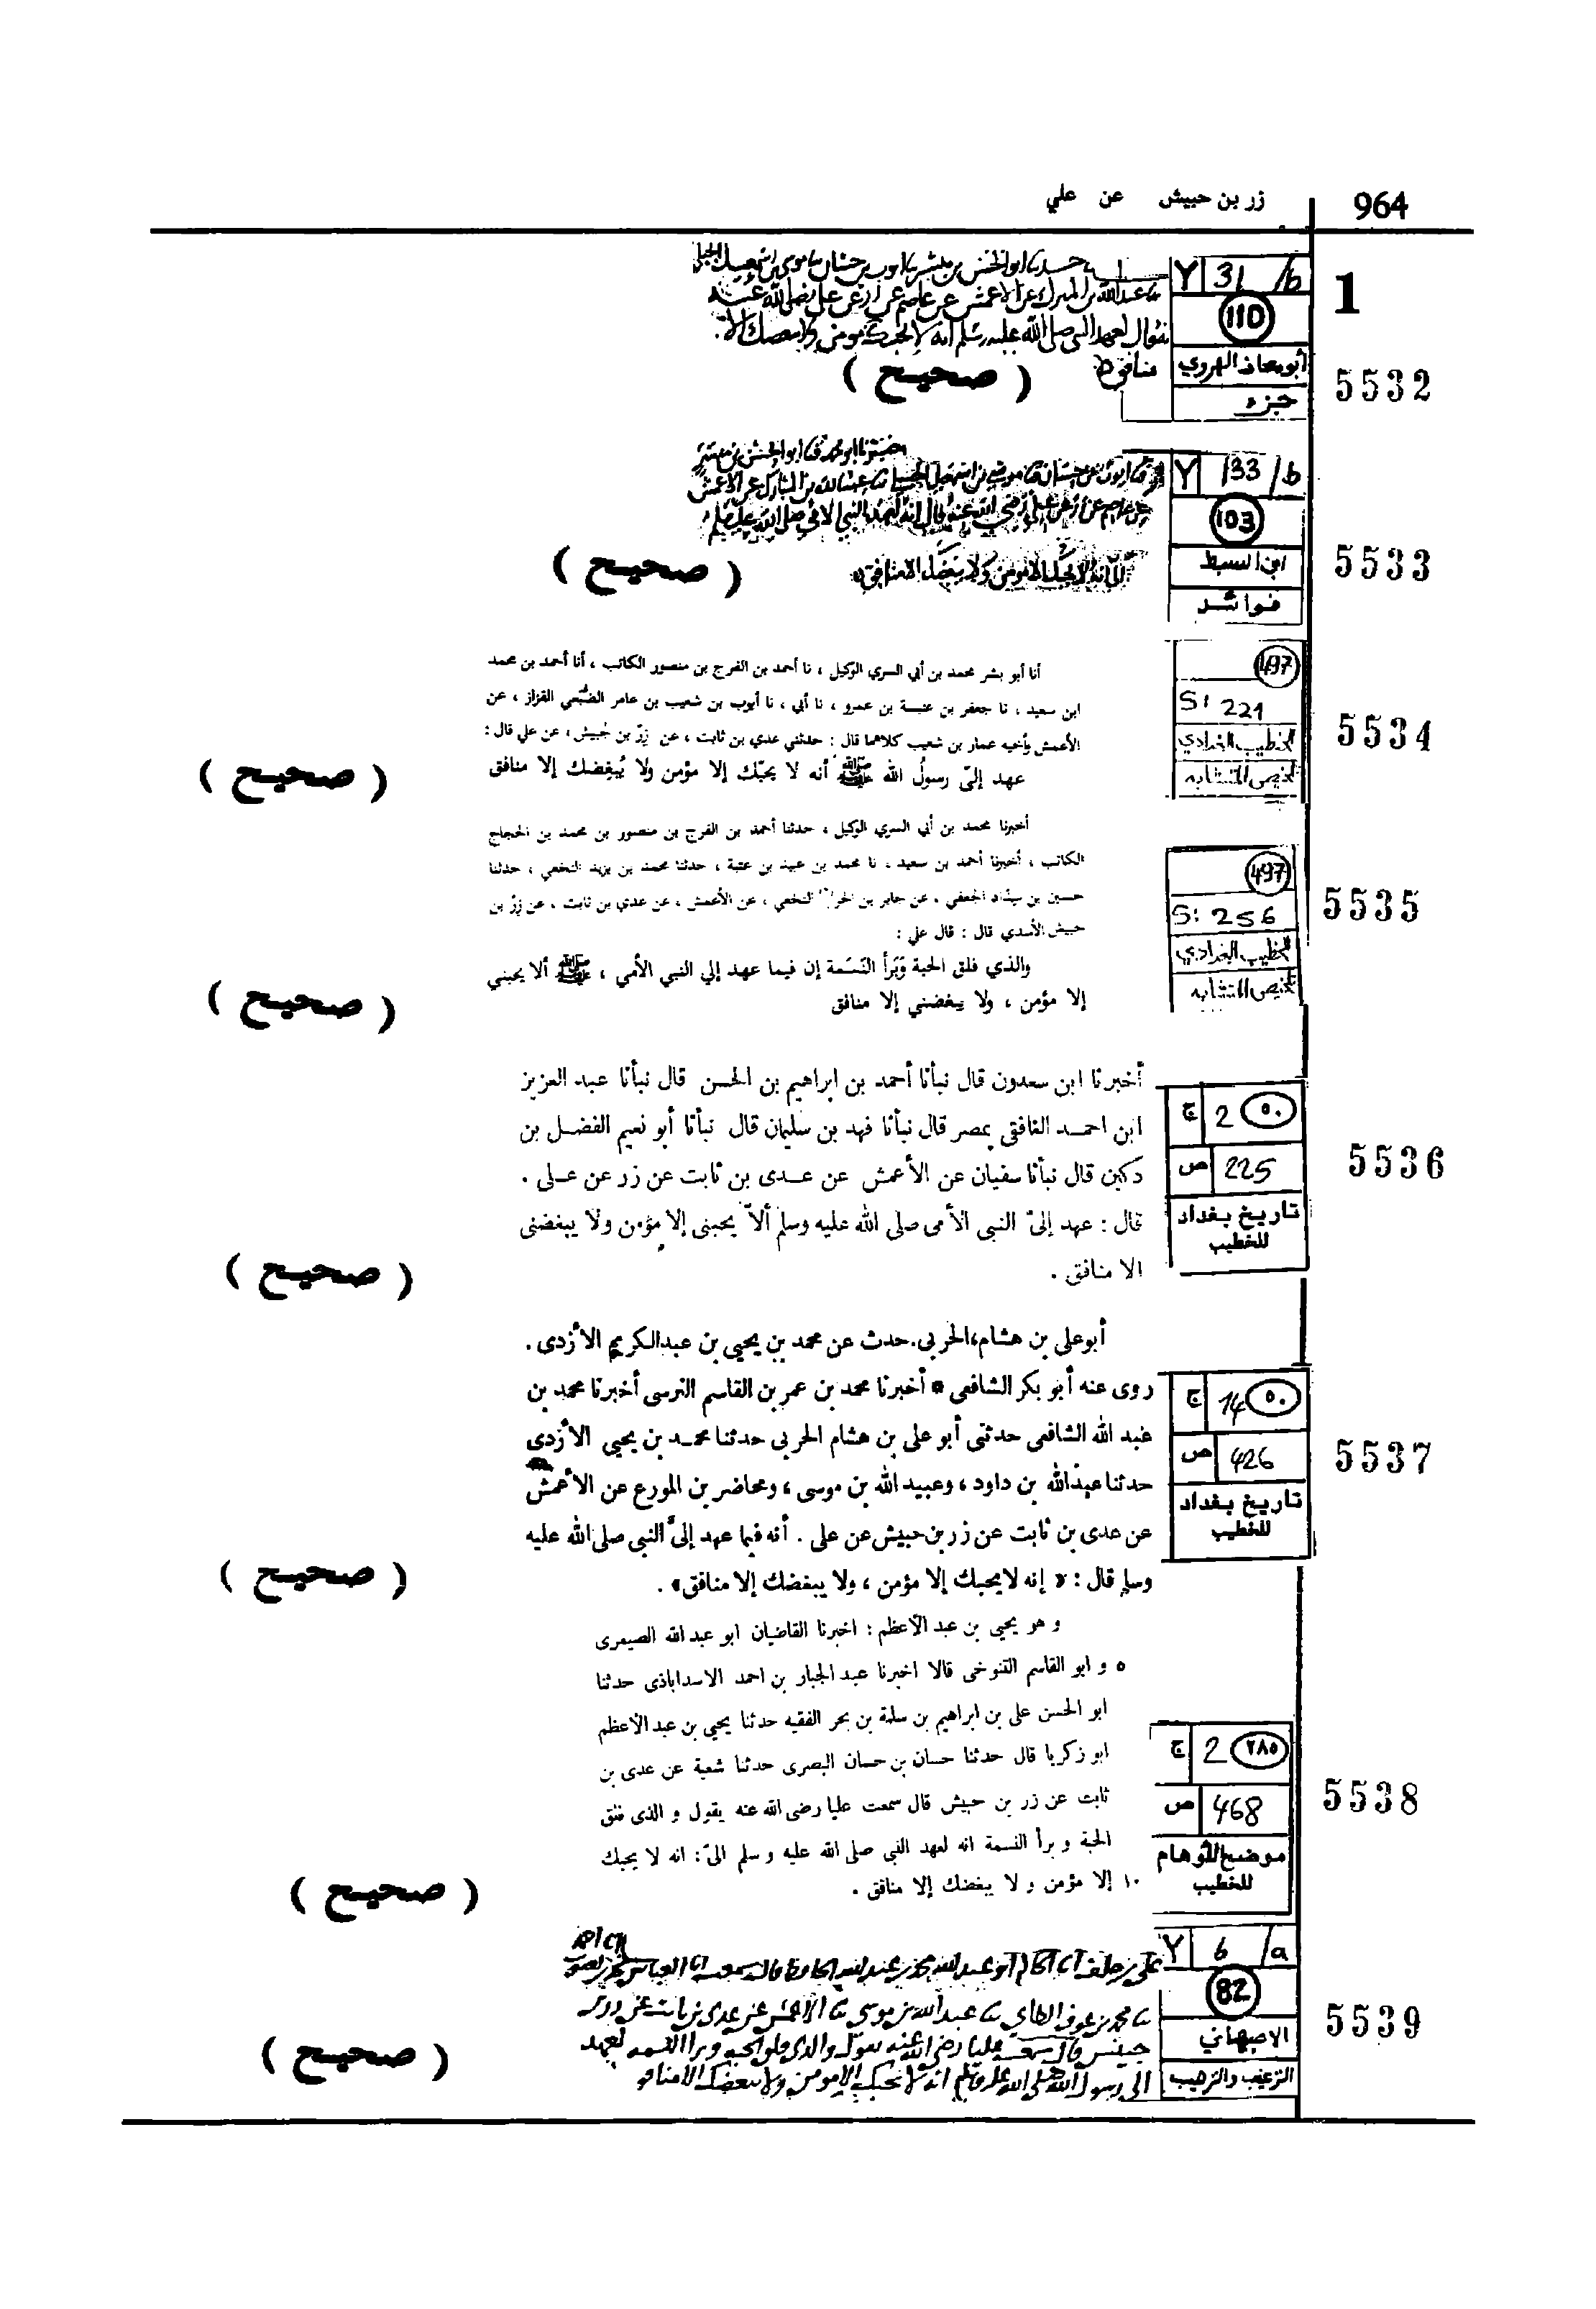 964
زر بن حبيش عن علي
1
Y 31 /b
110
أبو معاذ الهروي
جزء
5532
نا عبد الله بن المبرك عن الاعمش عن عاصم عن زر عن علي رضي الله عنه
منافق
( صحيح )
Y 133 /b
103
ابن السبط
فوائد
5533
( صحيح )
497
S: 221
الخطيب البغدادي
تلخيص المتشابه
5534
أنا أبو بشر محمد بن أبي السري الوكيل ، نا أحمد بن الفرج بن منصور الكاتب ، أنا أحمد بن محمد
ابن سعيد ، نا جعفر بن عنبسة بن عمرو ، نا أبي ، نا أيوب بن شعيب بن عامر الضبعي القزاز ، عن
الأعمش وأخيه عمار بن شعيب كلاهما قال : حدثني عدي بن ثابت ، عن زر بن حُبيش ، عن علي قال :
عهد إليّ رسولُ الله ﷺ أنه لا يحبّك إلا مؤمن ولا يُبغِضك إلا منافق
( صحيح )
497
S: 256
الخطيب البغدادي
تلخيص المتشابه
5535
أخبرنا محمد بن أبي السري الوكيل ، حدثنا أحمد بن الفرج بن منصور بن محمد بن الحجاج
الكاتب ، أخبرنا أحمد بن سعيد ، نا محمد بن عبيد بن عتبة ، حدثنا محمد بن يزيد النخعي ، حدثنا
حسين بن الجعفي ، عن جابر بن النخعي ، عن الأعمش ، عن عدي بن ثابت ، عن زِرّ بن
حبيش الأسدي قال : قال علي :
والذي فلق الحبة وَبَرأَ النَسَمة إن فيما عهد إلي النبي الأمي ، ﷺ ألا يحبني
إلا مؤمن ، ولا يبغضني إلا منافق
( صحيح )
٥٠ 2 ج
225 ص
تاريخ بغداد
للخطيب
5536
أخبرنا ابن سعدون قال نبأنا أحمد بن ابراهيم بن الحسن قال نبأنا عبد العزيز
ابن احمد الغافقي بمصر قال نبأنا فهد بن سليمان قال نبأنا أبو نعيم الفضل بن
دكين قال نبأنا سفيان عن الأعمش عن عدى بن ثابت عن زر عن علي .
قال : عهد إليّ النبي الأمى صلى الله عليه وسلم ألاّ يحبنى إلا مؤمن ولا يبغضنى
الا منافق .
( صحيح )
٥٠ 14 ج
426 ص
تاريخ بغداد
للخطيب
5537
أبو على بن هشام، الحربى. حدث عن محمد بن يحيي بن عبدالكريم الأزدى .
روى عنه أبو بكر الشافعى * أخبرنا محمد بن عمر بن القاسم النرسى أخبرنا محمد بن
عبد الله الشافعى حدثنى أبو على بن هشام الحربى حدثنا محمد بن يحيي الأزدى
حدثنا عبدالله بن داود ، وعبيد الله بن موسى ، ومحاضر بن المورع عن الأعمش
عن عدى بن ثابت عن زر بن حبيش عن على . أنه فيما عهد إلىّ النبي صلى الله عليه
وسلم قال : « إنه لا يحبك إلا مؤمن ، ولا يبغضك إلا منافق» .
( صحيح )
٢٨٥ 2 ج
468 ص
موضح الأوهام
للخطيب
5538
و هو يحيي بن عبد الأعظم : اخبرنا القاضيان ابو عبد الله الصيمرى
٥ و ابو القاسم التنوخى قالا اخبرنا عبد الجبار بن احمد الاسداباذى حدثنا
ابو الحسن على بن ابراهيم بن سلمة بن بحر الفقيه حدثنا يحيي بن عبد الأعظم
ابو زكريا قال حدثنا حسان بن حسان البصرى حدثنا شعبة عن عدى بن
ثابت عن زر بن حبيش قال سمعت عليا رضى الله عنه يقول و الذى فلق
الحبة و برأ النسمة انه لعهد النبي صلى الله عليه و سلم الىّ : انه لا يحبك
١٠ إلا مؤمن و لا يبغضك إلا منافق .
( صحيح )
Y 6 /a
82
الاصبهاني
الترغيب والترهيب
5539
نا محمد بن عوف الطاي نا عبد الله بن موسى نا الاعمش عن عدى بن ثابت عن زر بن
حبيش قال سمعت عليا رضي الله عنه يقول والذي فلق الحبه وبرا النسمه لعهد
الى رسول الله صلى الله عليه وسلم انه لا يحبك الا مومن ولا يبغضك الا منافق
( صحيح )